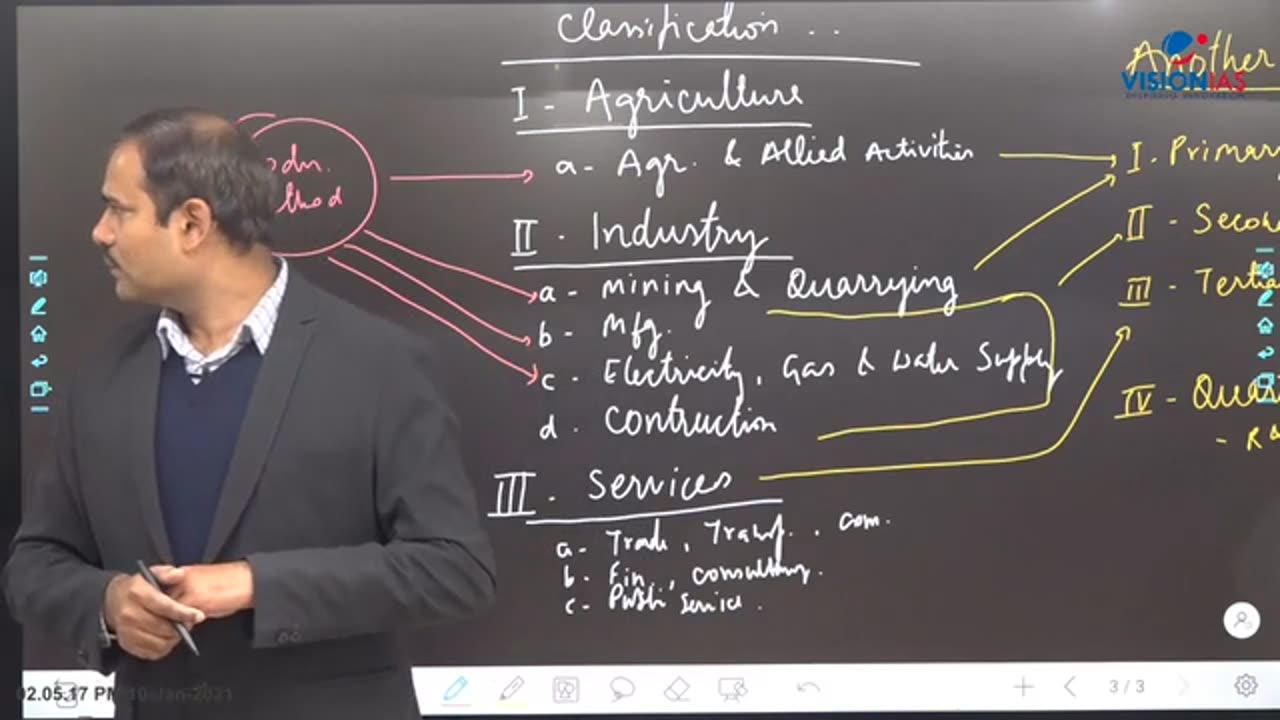 Classification ..
I - Agriculture
a - Agr. & Allied Activities
II - Industry
a - Mining & Quarrying
b - Mfg.
c - Electricity, Gas & Water Supply
d. Contruction
III. Services
a - Trade, Transp., Com.
b. Fin., Consultuny.
c - Public Service.
odn.
thod
Another
VISIONIAS
INSPIRING INNOVATION
I. Primary
II - Secon
III - Tertia
IV - Quar
- R &
02.05.17 PM 10-Jan-2021
3 / 3